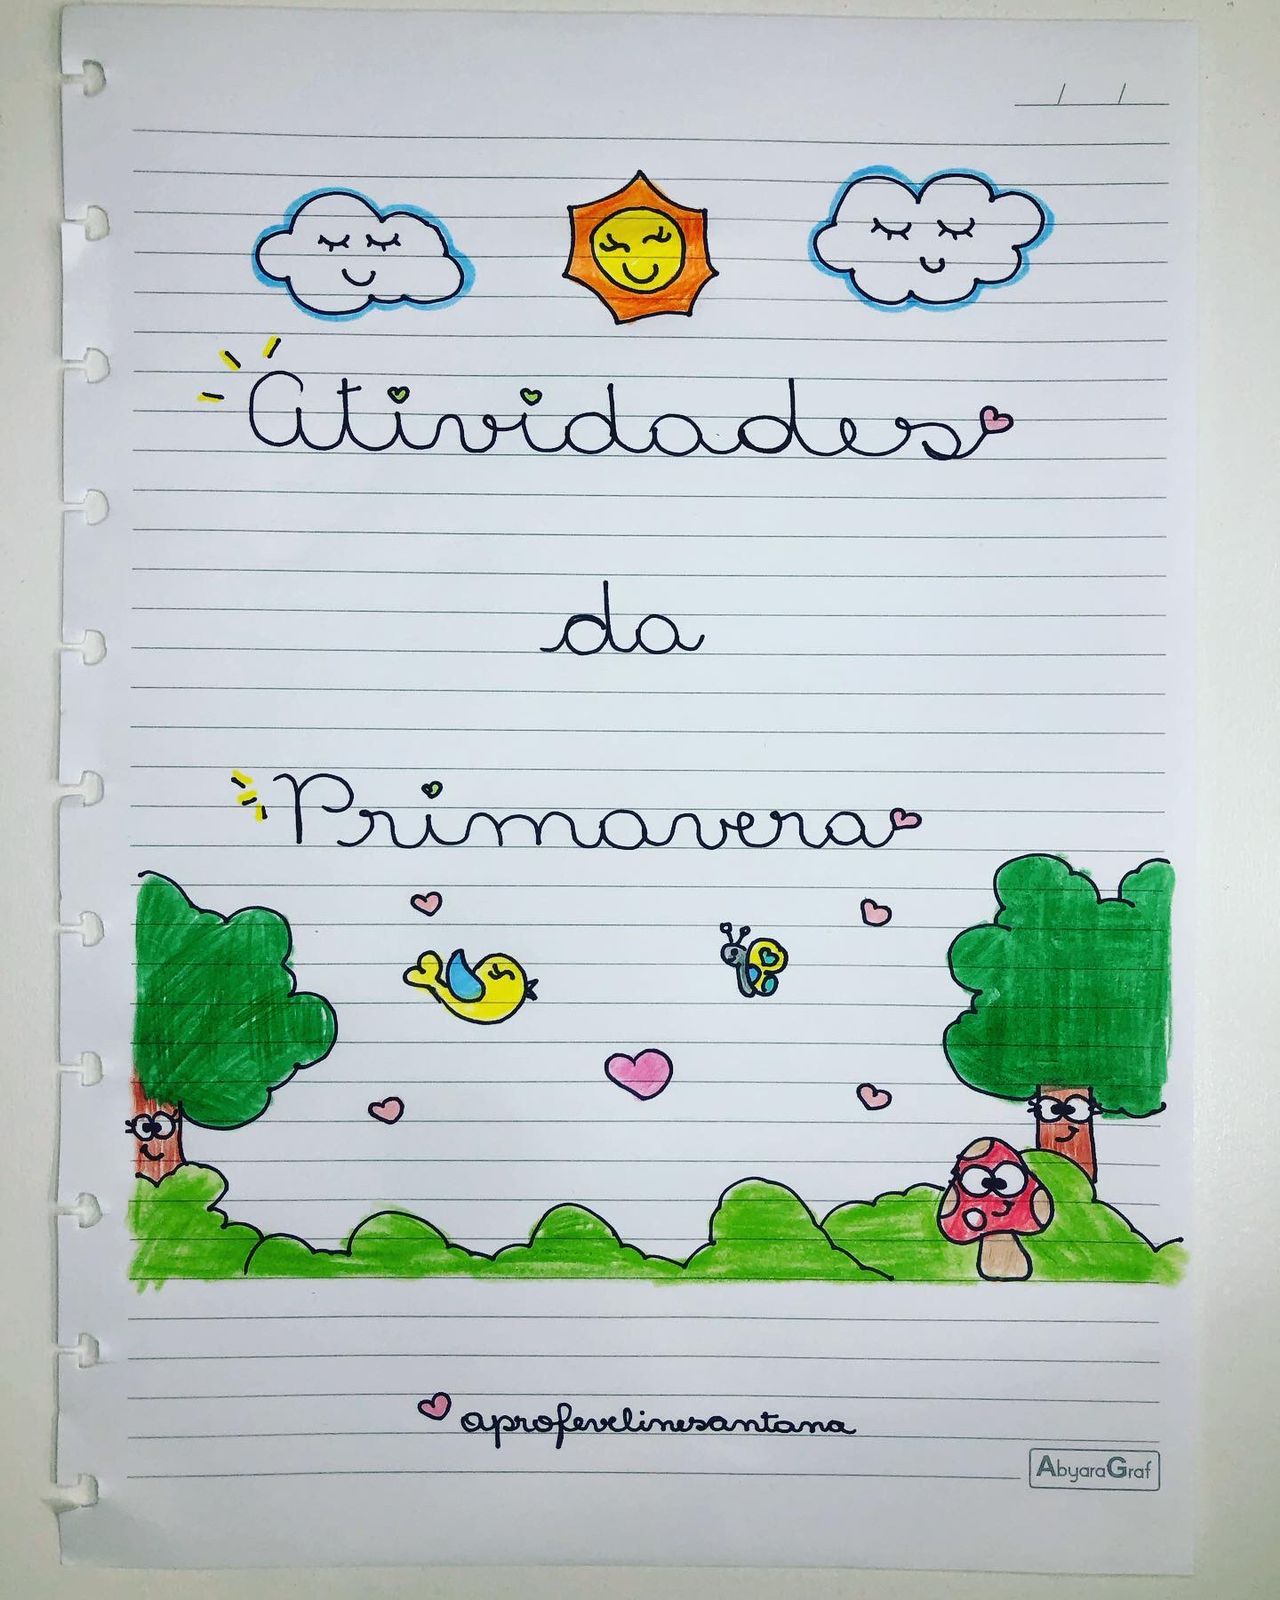 Atividades
da
Primavera
aprofevelinesantana
AbyaraGraf